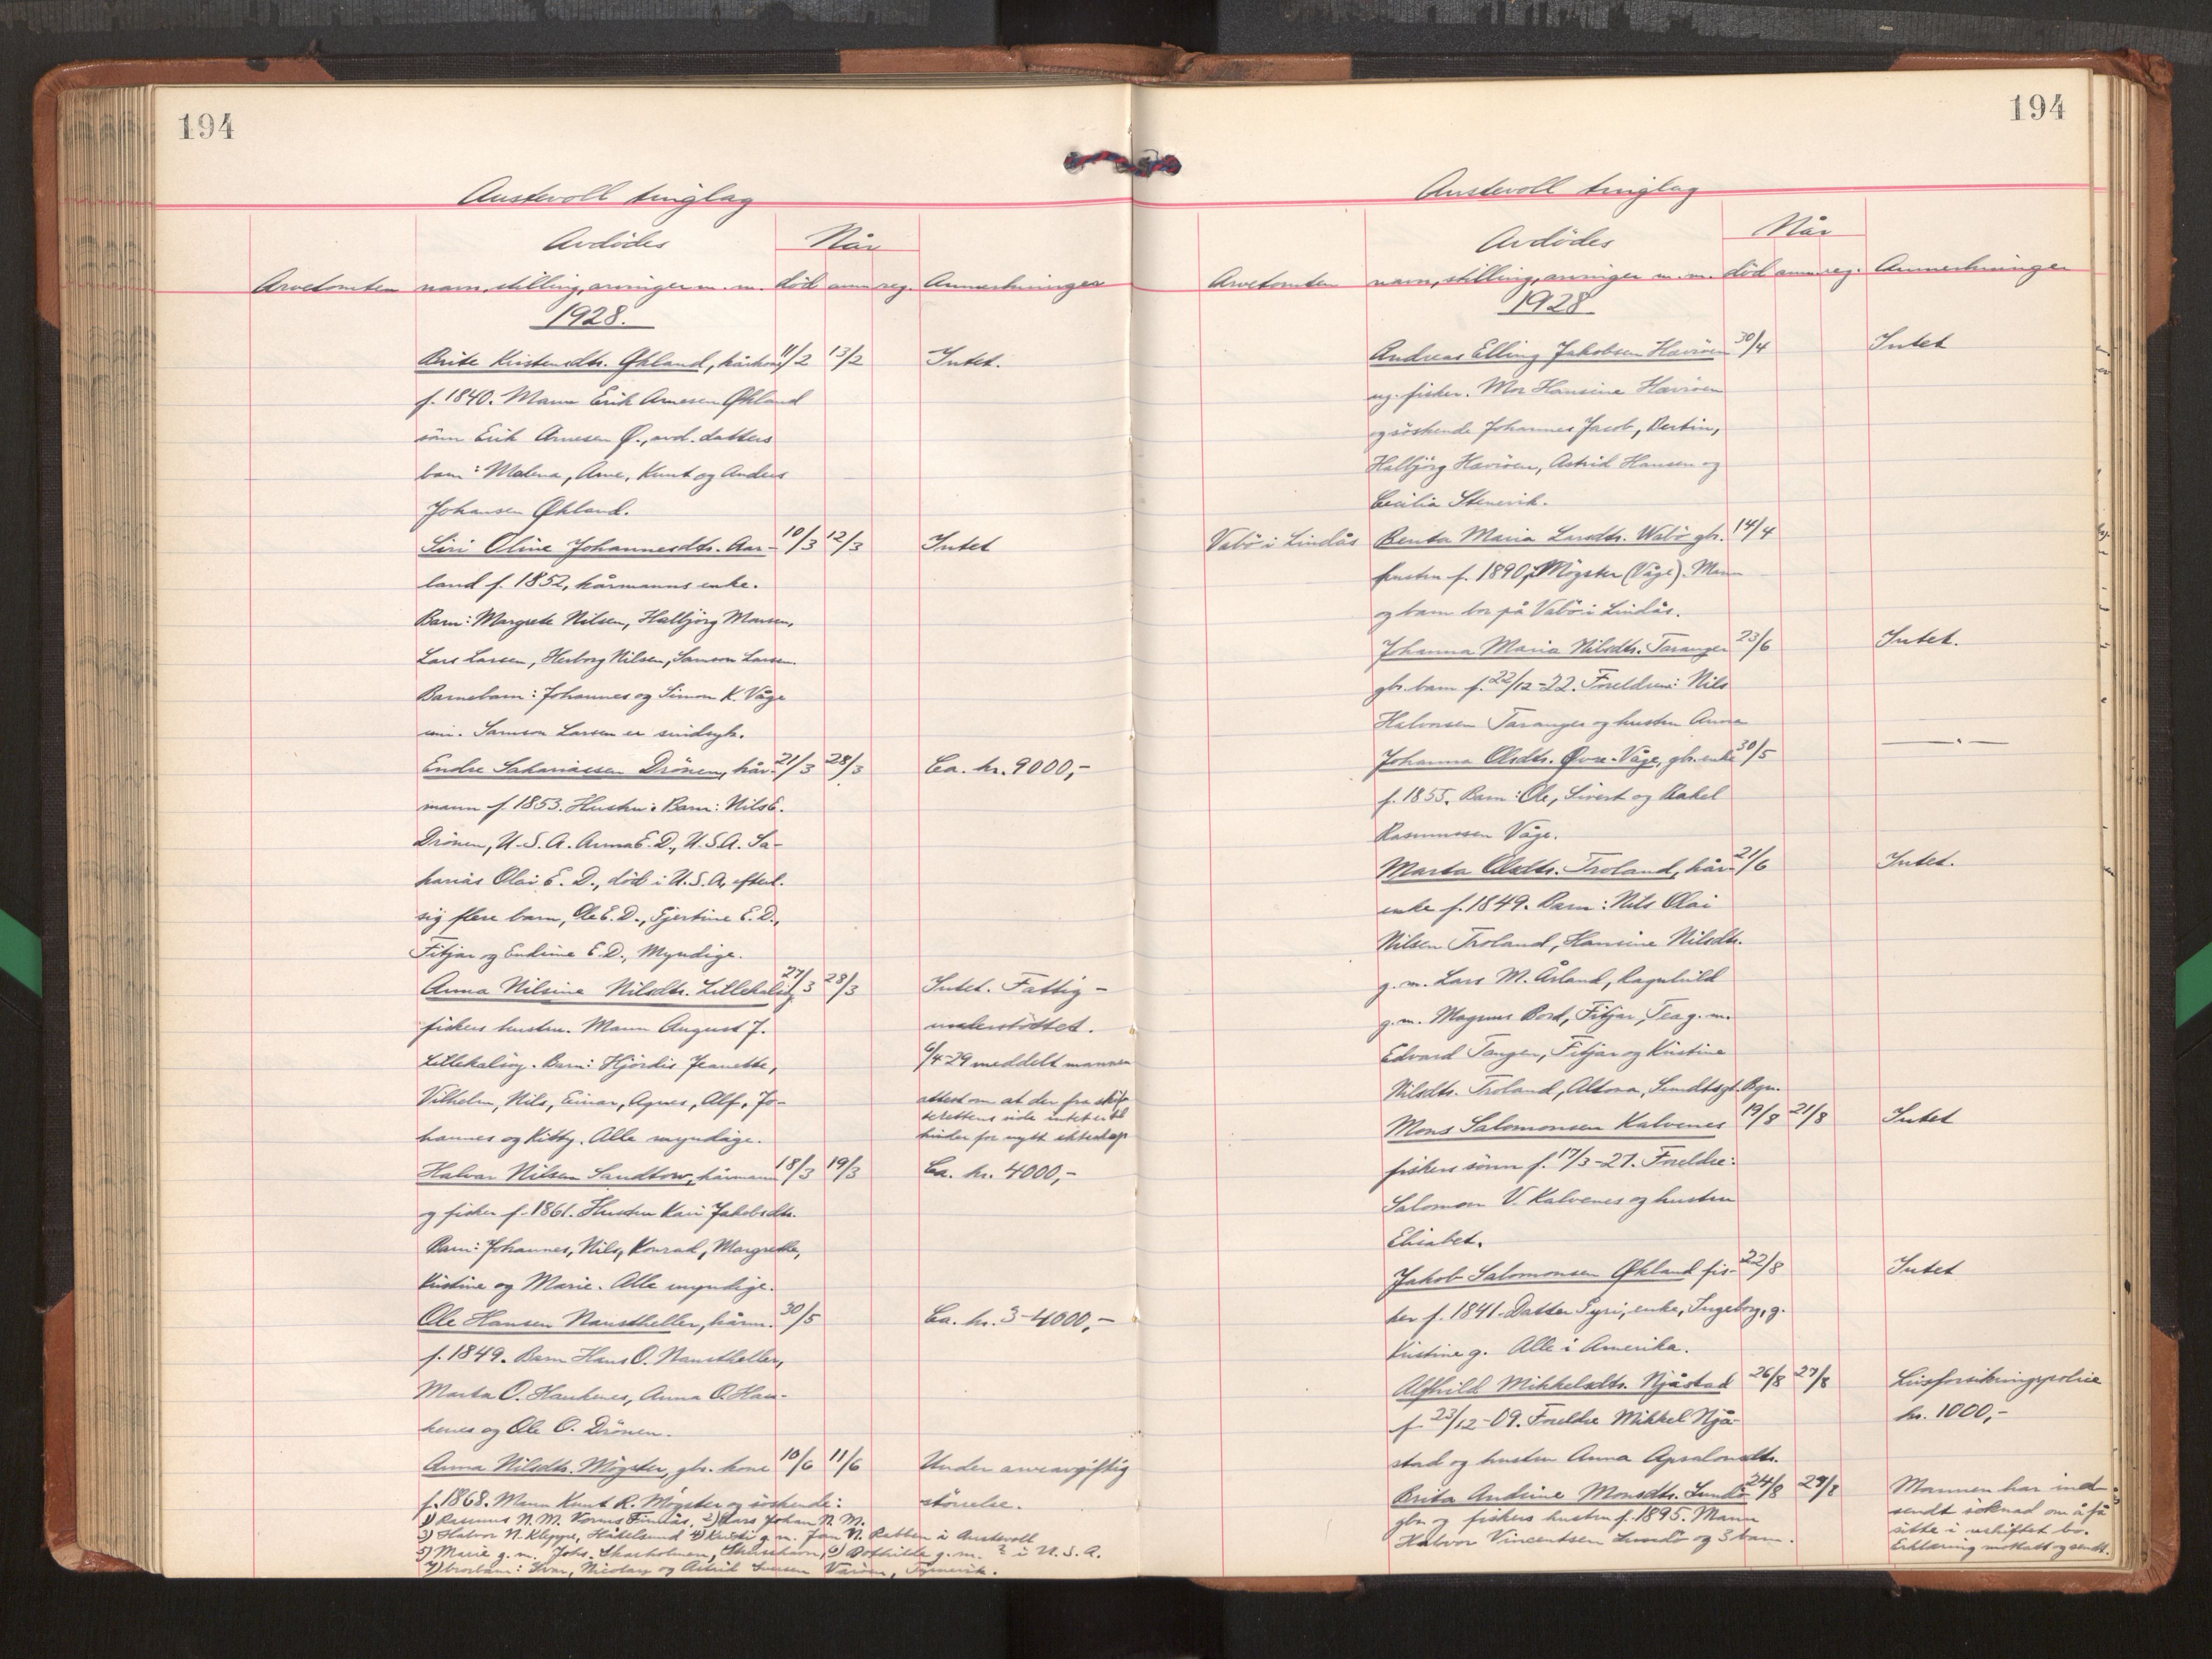 194
Austevoll tinglag
Avdødes
Når
Arvetomten navn, stilling, arvinger m. m. død anm. reg. Anmerkninger
1928.
Brite Kristensdtr. Økland, kårkone 11/2 13/2 Intet.
f. 1840. Mann Erik Arnesen Økland
sönn Erik Arnesen Ø., avd. datters
barn: Malena, Arne, Knut og Anders
Johansen Økland.
Siri Oline Johannesdtr. Aar- 10/3 12/3 Intet
land f. 1852, kårmanns enke.
Barn: Margrete Nilsen, Halbjörg Monsen,
Lars Larsen, Herborg Nilsen, Samson Larsen.
Barnebarn: Johannes og Simon K. Våge
umn. Samson Larsen er sindsyk.
Endre Sakariassen Drönen, kår- 21/3 28/3 Ca. kr. 9000,-
mann f. 1853. Hustru: Barn: Nils E.
Drönen, U.S.A. Anna E. D., U.S.A. Sa-
karias Olai E. D., död i U.S.A. efterl.
sig flere barn, Ole E. D., Gjertine E. D.,
Fitjar og Endrine E. D., Myndige.
Anna Nilsine Nilsdtr. Lillekalsöy 27/3 28/3 Intet. Fattig-
fiskers hustru. Mann August J. understöttet.
Lillekalsöy. Barn: Hjördis Jeanette, 6/4-29 meddelt mannen
Vilhelm, Nils, Einar, Agnes, Alf, Jo- attest om at der fra skif-
terettens side intet er til
hannes og Kitty. Alle myndige. hinder for nytt ekteskap
Halvar Nilsen Sandtorv, kårmann 18/3 19/3 Ca. kr. 4000,-
og fisker f. 1861. Hustru Kari Jakobsdtr.
Barn: Johannes, Nils, Konrad, Margrethe,
Kristine og Marie. Alle myndige.
Ole Hansen Naustheller, kårm. 30/5 Ca. kr. 3-4000,-
f. 1849. Barn Hans O. Naustheller,
Marta O. Haukenes, Anna O. Hau-
kenes og Ole O. Drönen.
Anna Nilsdtr. Mögster, gbr. kone 10/6 11/6 Under arveavgiftig
f. 1868. Mann Knut R. Mögster og söskende: störrelse.
1) Rasmus N. M. Finnås, 2) Lars Johan N. M.
3) Halvor N. Kleppe, Håkelsund 4) Kristi g. m. Jan N. Rabben i Austevoll
5) Marie g. m. Johs. Skarholmen, 6) Bothilde g. m. ? i U.S.A.
7) brorbarn: Ivar, Nicolay og Astrid Iversen
194
Austevoll tinglag
Avdødes
Når
Arvetomten navn, stilling, arvinger m. m. död anm. reg. Anmerkninger
1928
Andreas Elling Jakobsen Havröen 30/4 Intet
ug. fisker. Mor Hansine Havröen
og söskende Johannes Jacob, Bertin,
Halbjörg Havröen, Astrid Hansen og
Cecilia Stenevik.
Vabö i Lindås Benta Maria Larsdtr. Wabö gbr. 14/4
hustru f. 1890 på Mögster (Våge). Mann
og barn bor på Vabö i Lindås.
Johanna Maria Nilsdtr. Taranger 23/6 Intet.
gbr. barn f. 22/12-22. Foreldrene: Nils
Halvorsen Taranger og hustru Anna
Johanna Olsdtr. Øvre-Våge, gbr. enke 30/5 —"—
f. 1855. Barn: Ole, Sivert og Rakel
Rasmussen Våge.
Marta Olsdtr. Troland, kår- 21/6 Intet.
enke f. 1849. Barn: Nils Olai
Nilsen Troland, Hansine Nilsdtr.
g. m. Lars M. Årland, Ragnhild
g. m. Magnus Bort, Fitjar, Tea g. m.
Edvard Tangen, Fitjar og Kristine
Nilsdtr. Troland, Altona, Sundtsgt. Bgn.
Mons Salomonsen Kalvenes 19/8 21/8 Intet
fiskers sönn f. 17/3-27. Foreldre:
Salomon V. Kalvenes og hustru
Elisabet.
Jakob Salomonsen Økland fis- 22/8 Intet
ker f. 1841. Datter Gyri, enke, Ingeborg, g.
Kristine g. Alle i Amerika.
Alfhild Mikkelsdtr. Njåstad 26/8 27/8 Livsforsikringspolise
f. 23/12-09. Foreldre Mikkel Njå- kr. 1000,-
stad og hustru Anna Apsalonsdtr.
Brita Andrine Monsdtr. Lundö 24/8 29/8 Mannen har ind-
gbr. og fiskers hustru f. 1895. Mann sendt söknad om å få
Halvor Vincentsen Lundö og 3 barn. sitte i uskiftet bo.
Erklæring mottatt og sendt.